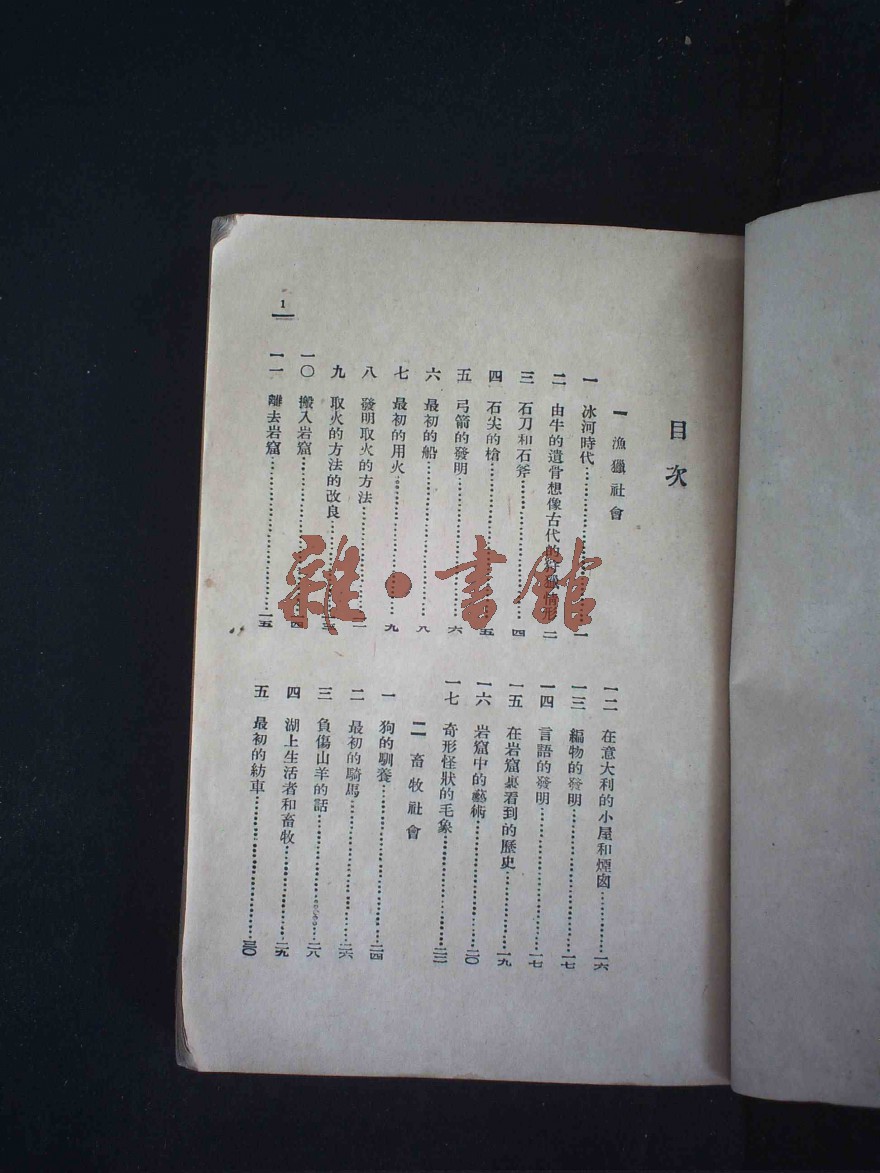 目次
一 漁獵社會
一 冰河時代……一
二 由牛的遺骨想像古代的狩獵情形 二
三 石刀和石斧……四
四 石尖的槍……五
五 弓箭的發明……六
六 最初的船……八
七 最初的用火……九
八 發明取火的方法……一一
九 取火的方法的改良……一三
一〇 搬入岩窟……一四
一一 離去岩窟……一五
一二 在意大利的小屋和煙囱……一六
一三 編物的發明……一七
一四 言語的發明……一七
一五 在岩窟裏看到的歷史……一九
一六 岩窟中的藝術……二〇
一七 奇形怪狀的毛象……二二
二 畜牧社會
一 狗的馴養……二四
二 最初的騎馬……二六
三 負傷山羊的話……二八
四 湖上生活者和畜牧……二九
五 最初的紡車……三〇
1
雜·書館